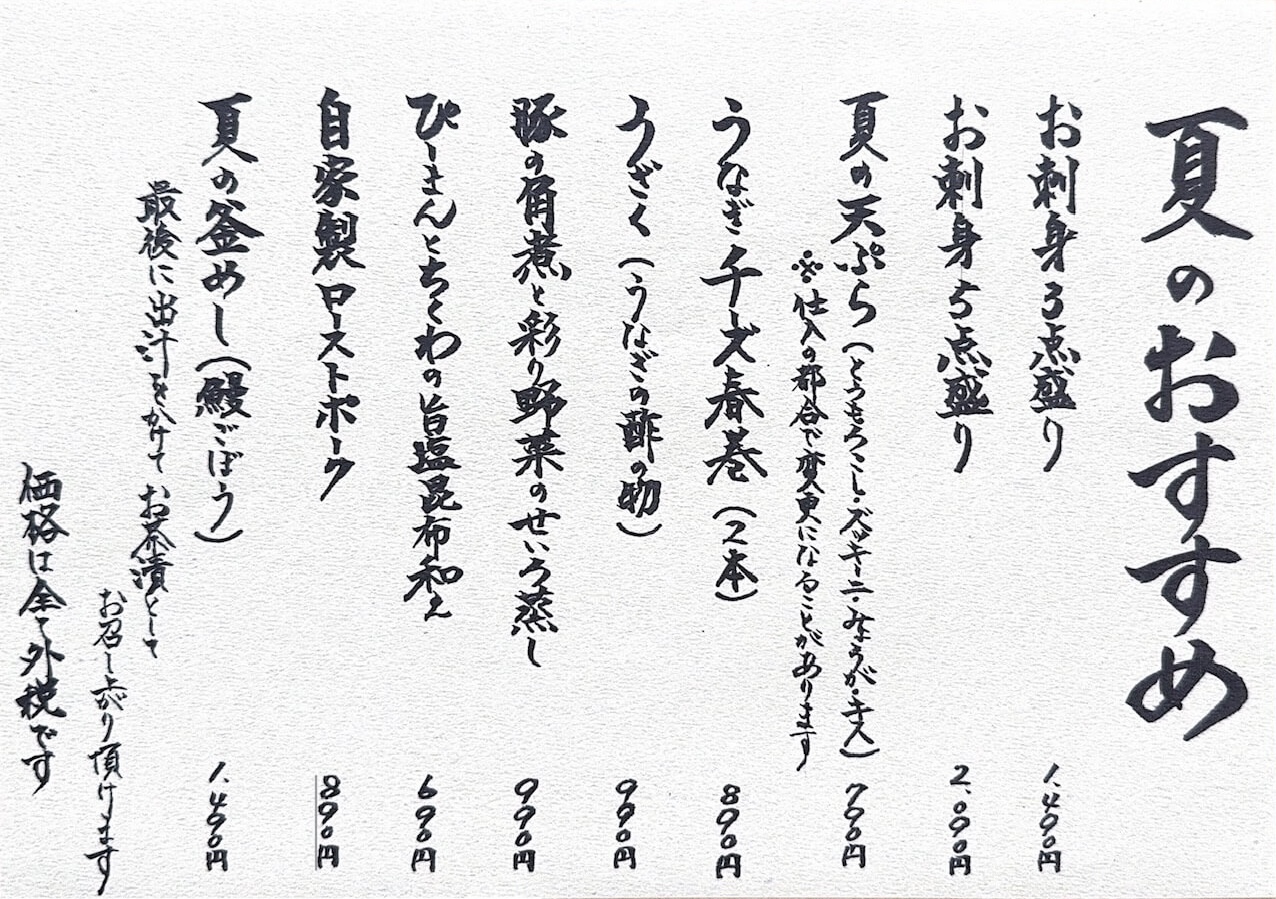 夏のおすすめ
お刺身3点盛り 1,490円
お刺身5点盛り 2,090円
夏の天ぷら(とうもろこし・ズッキーニ・みょうが・キス) 790円
※仕入の都合で変更になることがあります
うなぎチーズ春巻(2本) 890円
うざく(うなぎの酢の物) 990円
豚の角煮と彩り野菜のせいろ蒸し 990円
ぴーまんとちくわの旨塩昆布和え 690円
自家製ローストポーク 890円
夏の釜めし(鰻ごぼう) 1,490円
最後に出汁をかけてお茶漬として
お召し上がり頂けます
価格は全て外税です